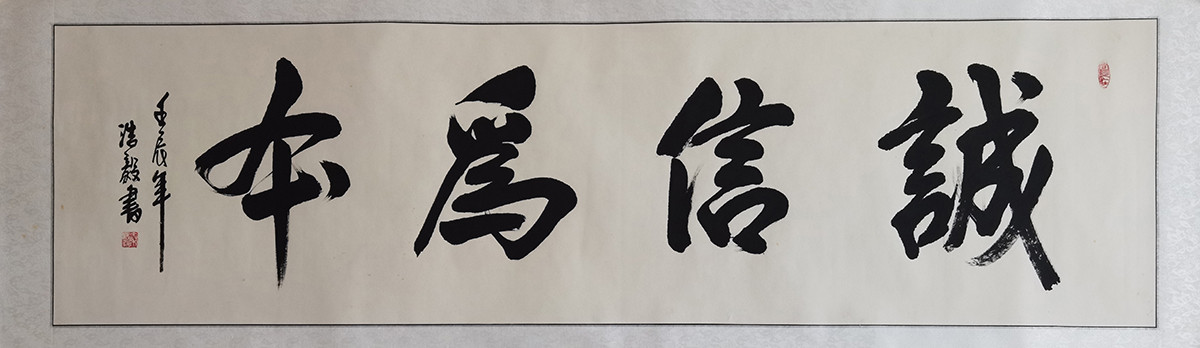 誠信為本
壬辰年
浩毅書